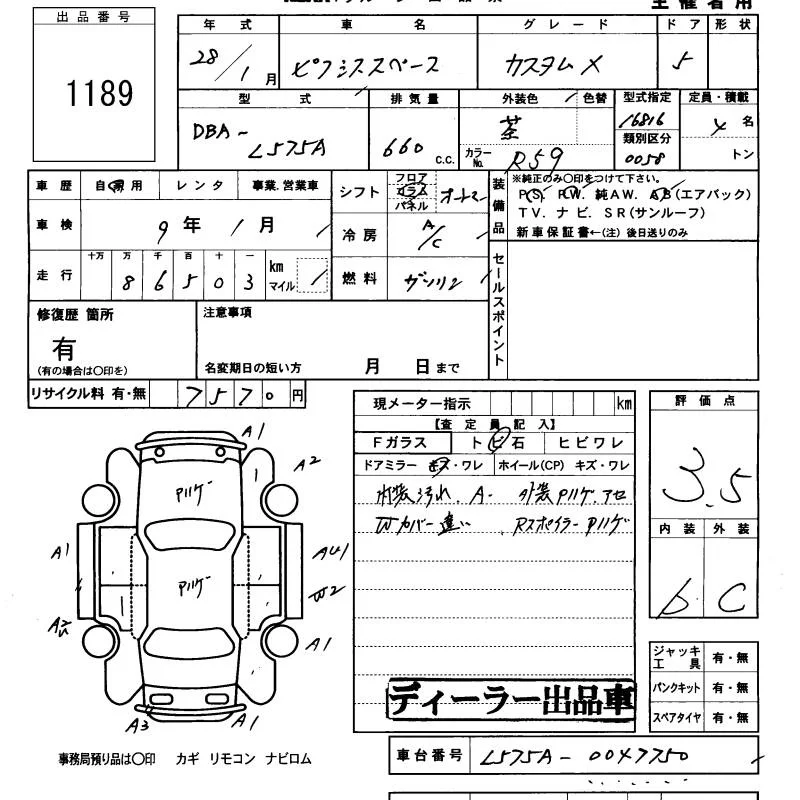 出品番号
1189
年 式 車 名 グレード ドア 形状
28/1月 ピクシススペース カスタムX 5
型 式 排気量 外装色 色替 型式指定 定員・積載
DBA-L575A 660 C.C. 茶 16816 4名
カラーNo. R59 類別区分 0058 トン
車歴 自家用 レンタ 事業.営業車
シフト フロア コラム パネル オートマ
装備品 ※純正のみ〇印をつけて下さい。
PS. PW. 純AW. AB(エアバック)
TV. ナビ. SR(サンルーフ)
新車保証書←(注) 後日送りのみ
車検 9年1月
冷房 A/C
走行 十万 万 千 百 十 一 km マイル
86503
燃料 ガソリン
セールスポイント
修復歴 箇所
有
(有の場合は〇印を)
注意事項
名変期日の短い方 月 日まで
リサイクル料 有・無 7570円
現メーター指示 km
【査定員記入】
Fガラス トビ石 ヒビワレ
ドアミラー キズ・ワレ ホイール(CP) キズ・ワレ
内装汚れ. A- 外装Pハゲ.アセ
Wカバー違い Rスポイラー Pハゲ
評価点
3.5
内装 外装
b C
A1
A2
Pハゲ
A1
AU1
Pハゲ
W2
A2
U
A1
A3
A1
ジャッキ工具 有・無
パンクキット 有・無
スペアタイヤ 有・無
ディーラー出品車
車台番号 L575A-0047750
事務局預り品は〇印 カギ リモコン ナビロム